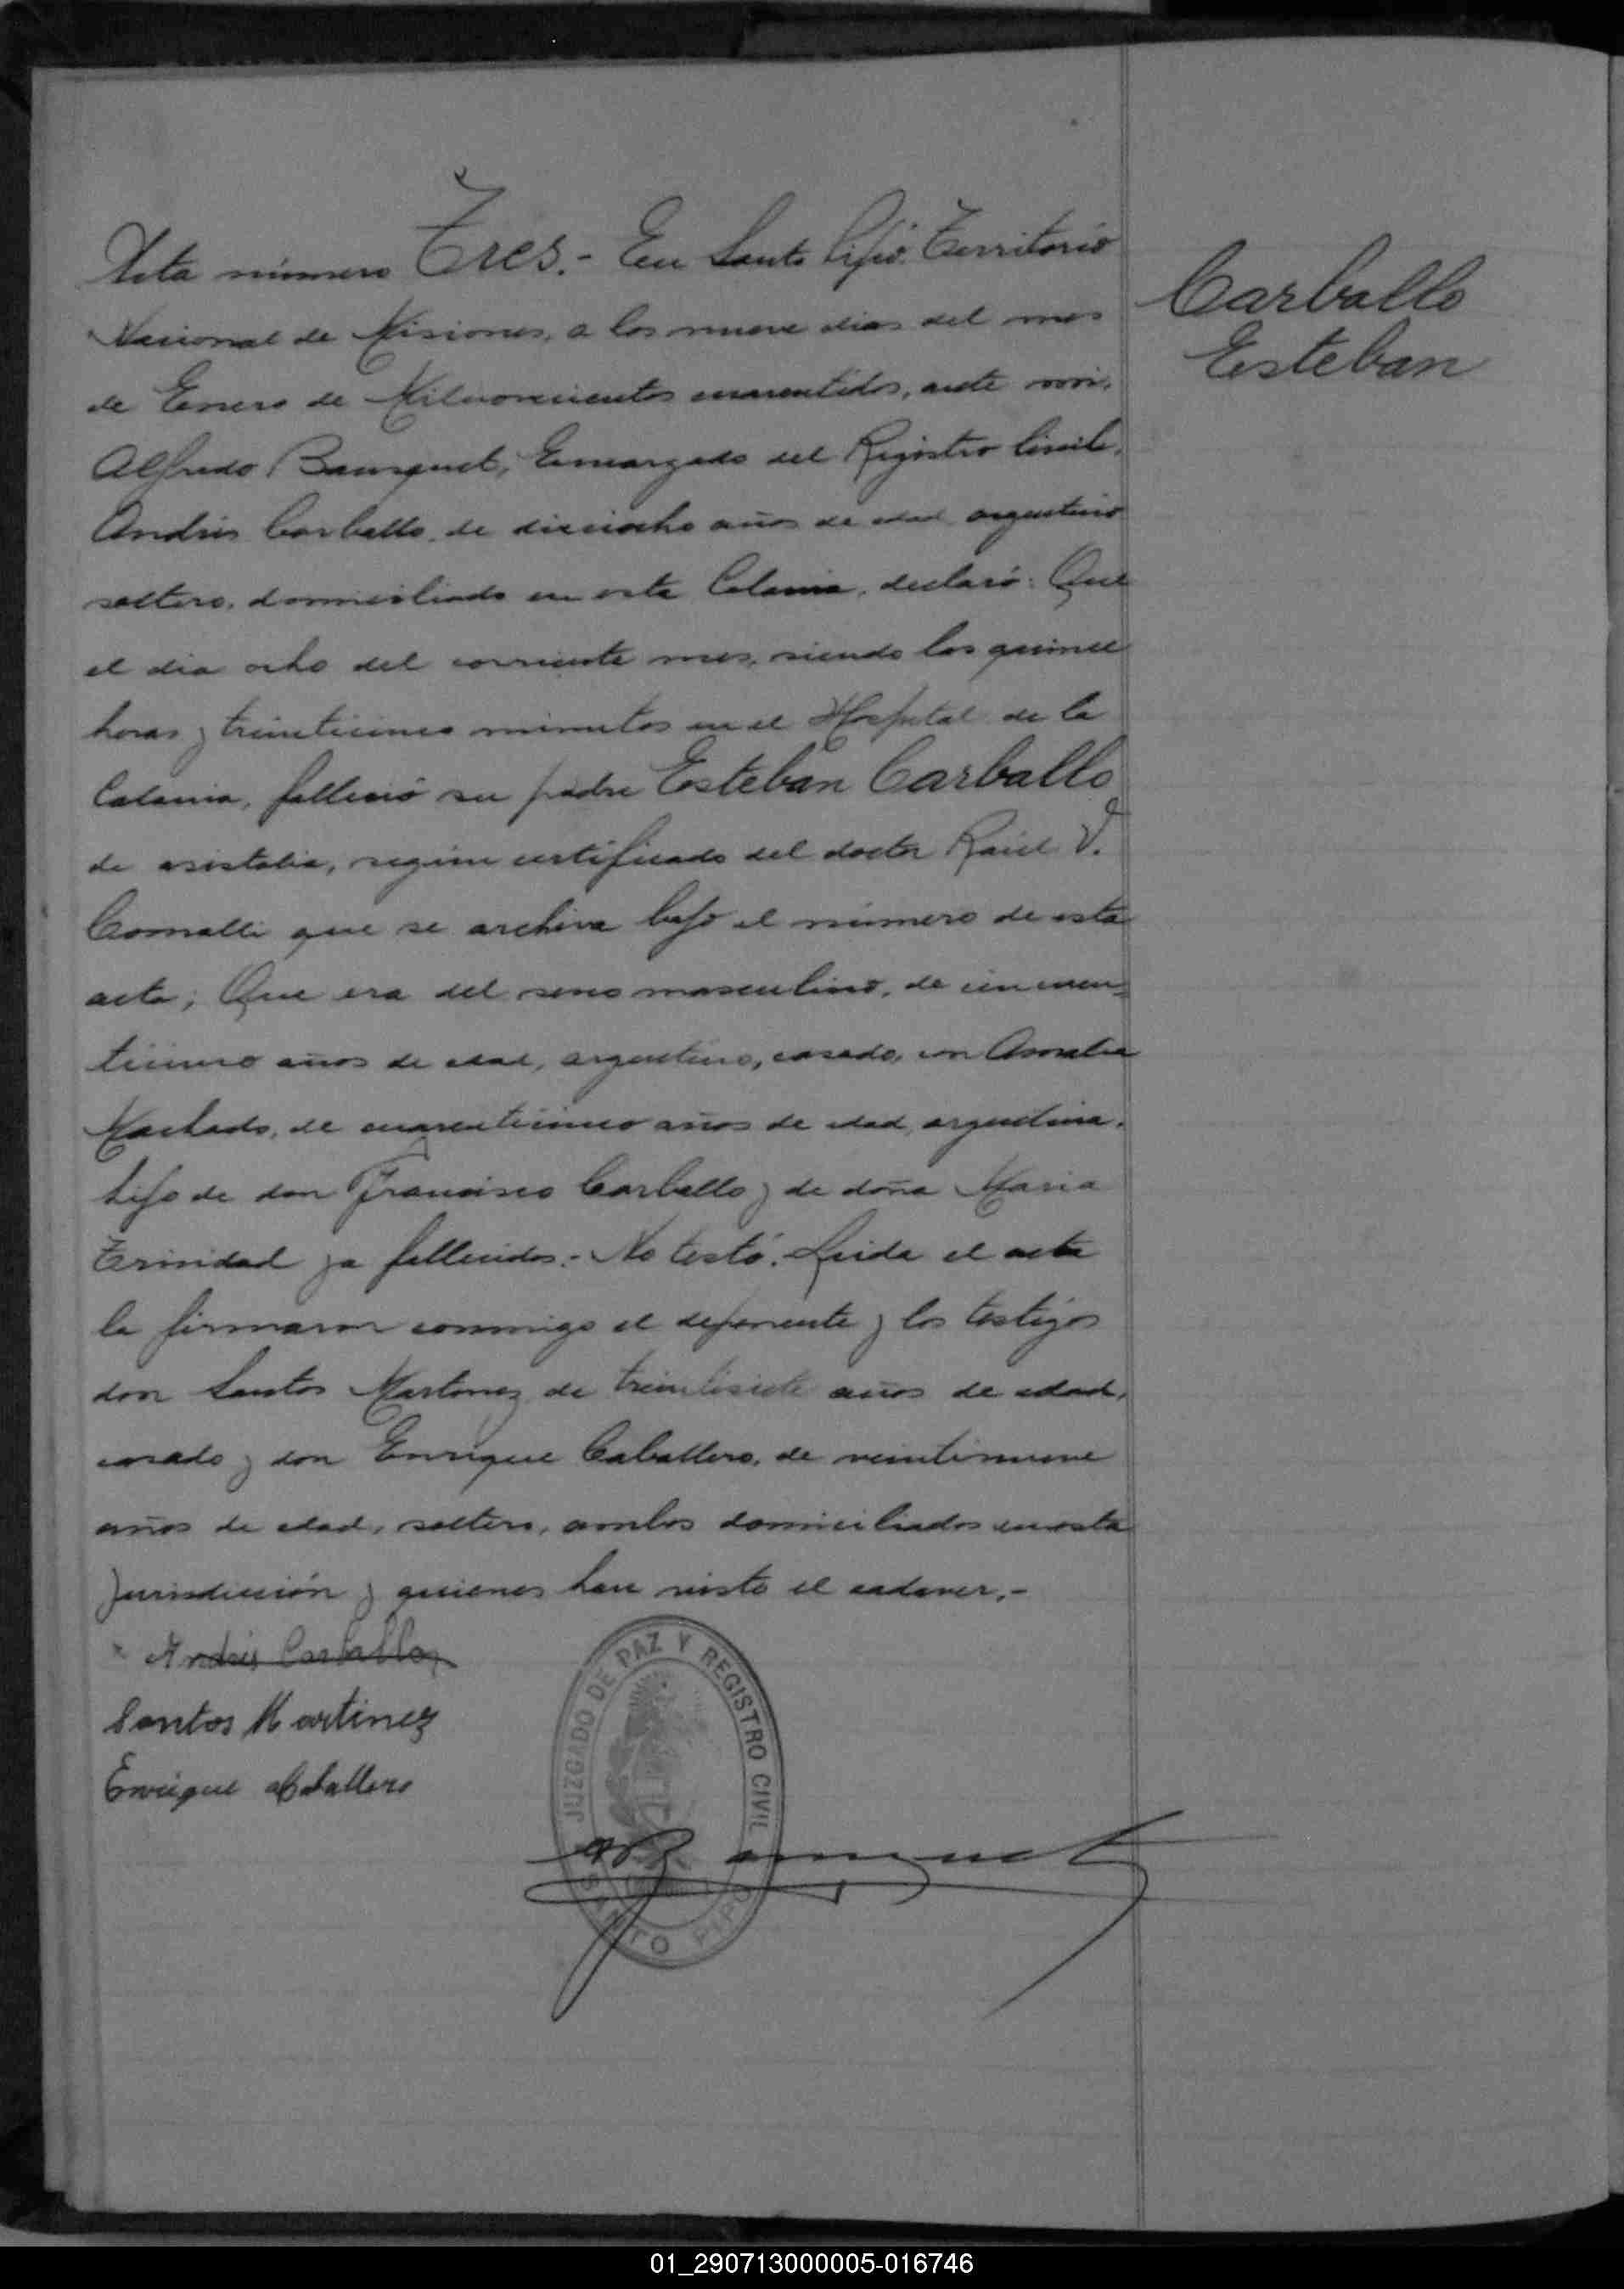 Acta número Tres.- En Santo Pipó Territorio
Nacional de Misiones, a los nueve dias del mes
de Enero de Milnovecientos cuarentidos, ante mi,
Alfredo Bausquet, Encargado del Registro Civil,
Andrés Carballo, de dieciocho años de edad argentino
soltero, domiciliado en esta Colonia, declaró: Que
el dia ocho del corriente mes, siendo las quince
horas y treinticinco minutos en el Hospital de la
Colonia, falleció su padre Esteban Carballo
de asistolia, según certificado del doctor Raúl V.
que se archiva bajo el número de esta
acta; Que era del sexo masculino, de cincuen=
ticinco años de edad, argentino, casado, con Amalia
Machado, de cuarenticinco años de edad, argentina.
hijo de don Francisco Carballo y de doña Maria
Trinidad ya fallecidos.- No testó. Leida el acta
la firmaron conmigo el deponente y los testigos
don Santos Martinez de treintisiete años de edad,
casado y don Enrique Caballero, de veintinueve
años de edad, soltero, ambos domiciliados en esta
jurisdicción y quienes han visto el cadaver.-
Andrés Carballo
Santos Martinez
Enrique Caballero
JUZGADO DE PAZ Y REGISTRO CIVIL
SANTO PIPO
Carballo
Esteban
01_290713000005-016746